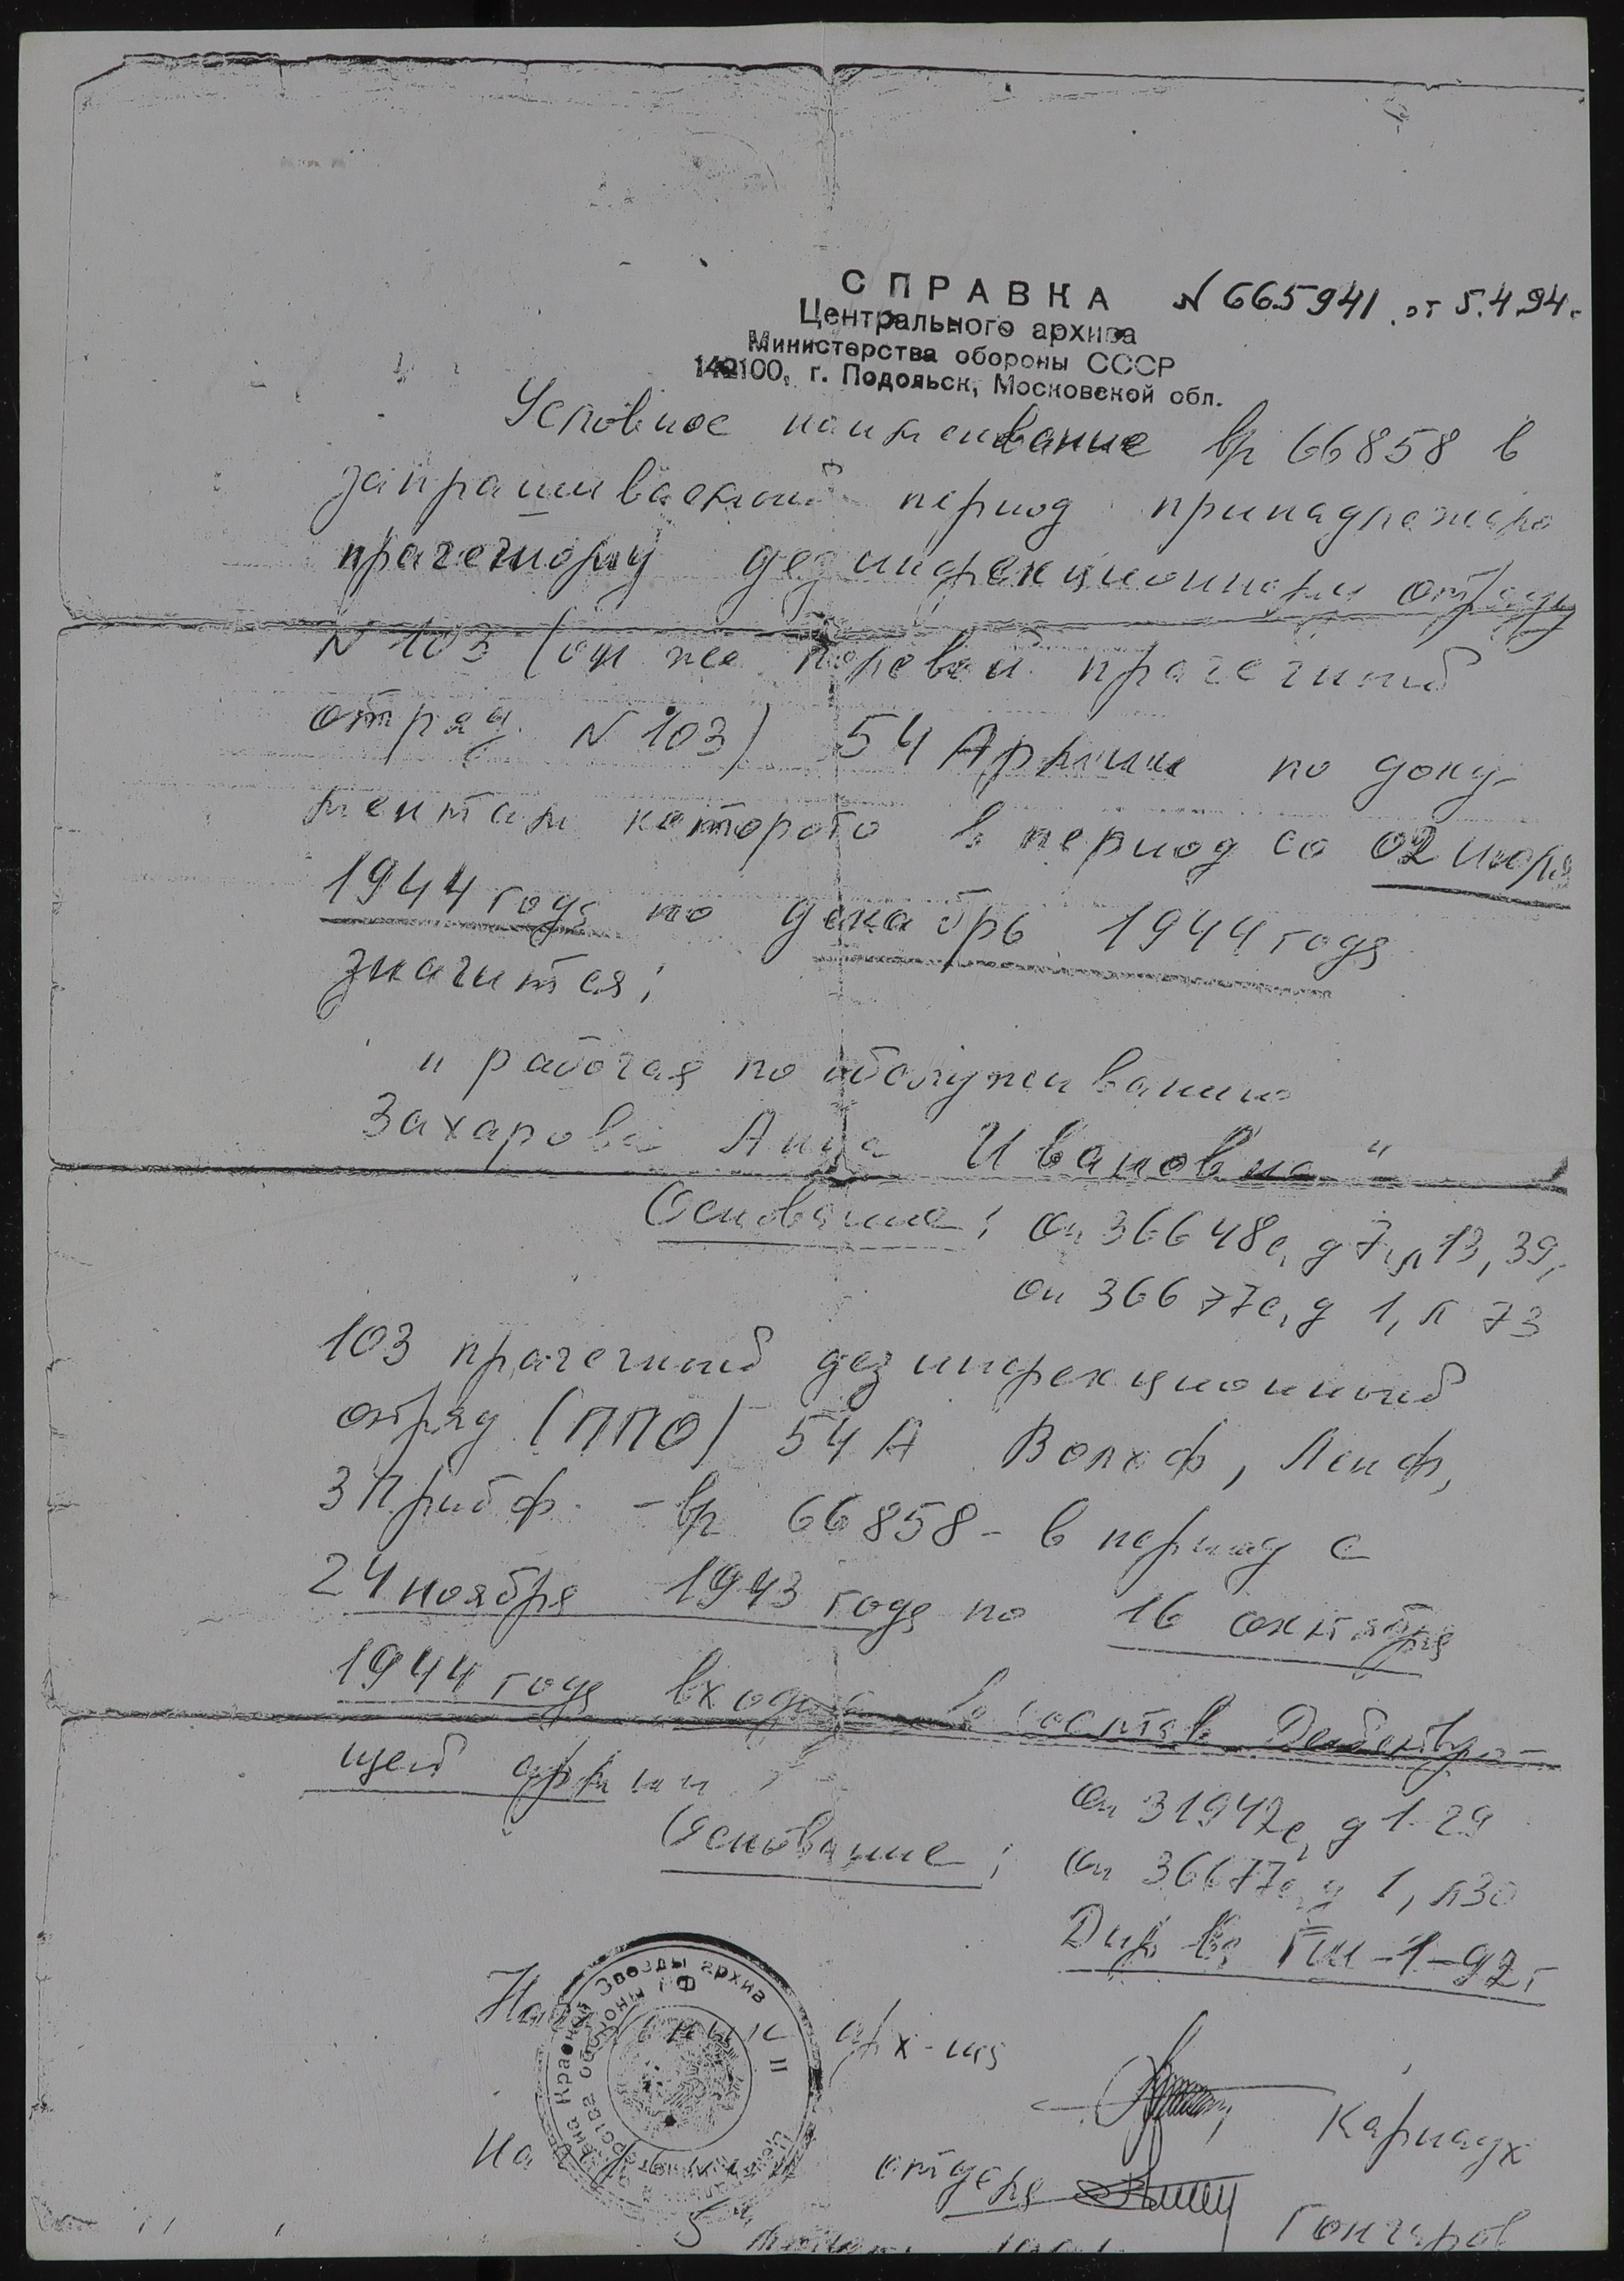 СПРАВКА N 665941 от 5.4.94г.
Центрального архива
Министерства обороны СССР
142100, г. Подольск, Московской обл.
Условное наименование в/ч 66858 в
запрашиваемый период принадлежало
прачечному дезинфекционному отряду
N 103 (он же полевой прачечный
отряд N 103) 54 Армии по доку-
ментам которого в период со 02 июля
1944 года по декабрь 1944 года
значится:
"рабочая по обслуживанию
Захарова Анна Ивановна"
Основание: оп 36648с, д 7, л 13, 39,
оп 36677с, д 1, л 73
103 прачечный дезинфекционный
отряд (ППО) 54 А Волх ф, Лен ф,
3 Приб ф. - в/ч 66858 - в период с
24 ноября 1943 года по 16 октября
1944 года входил в состав Действую-
щей армии
оп 31947с, д 1-29
Основание: оп 36677с, д 1, л 30
Дир ГШ-1-92г
Начальник арх-ща
Карнаух
отдела
Гончаров
5